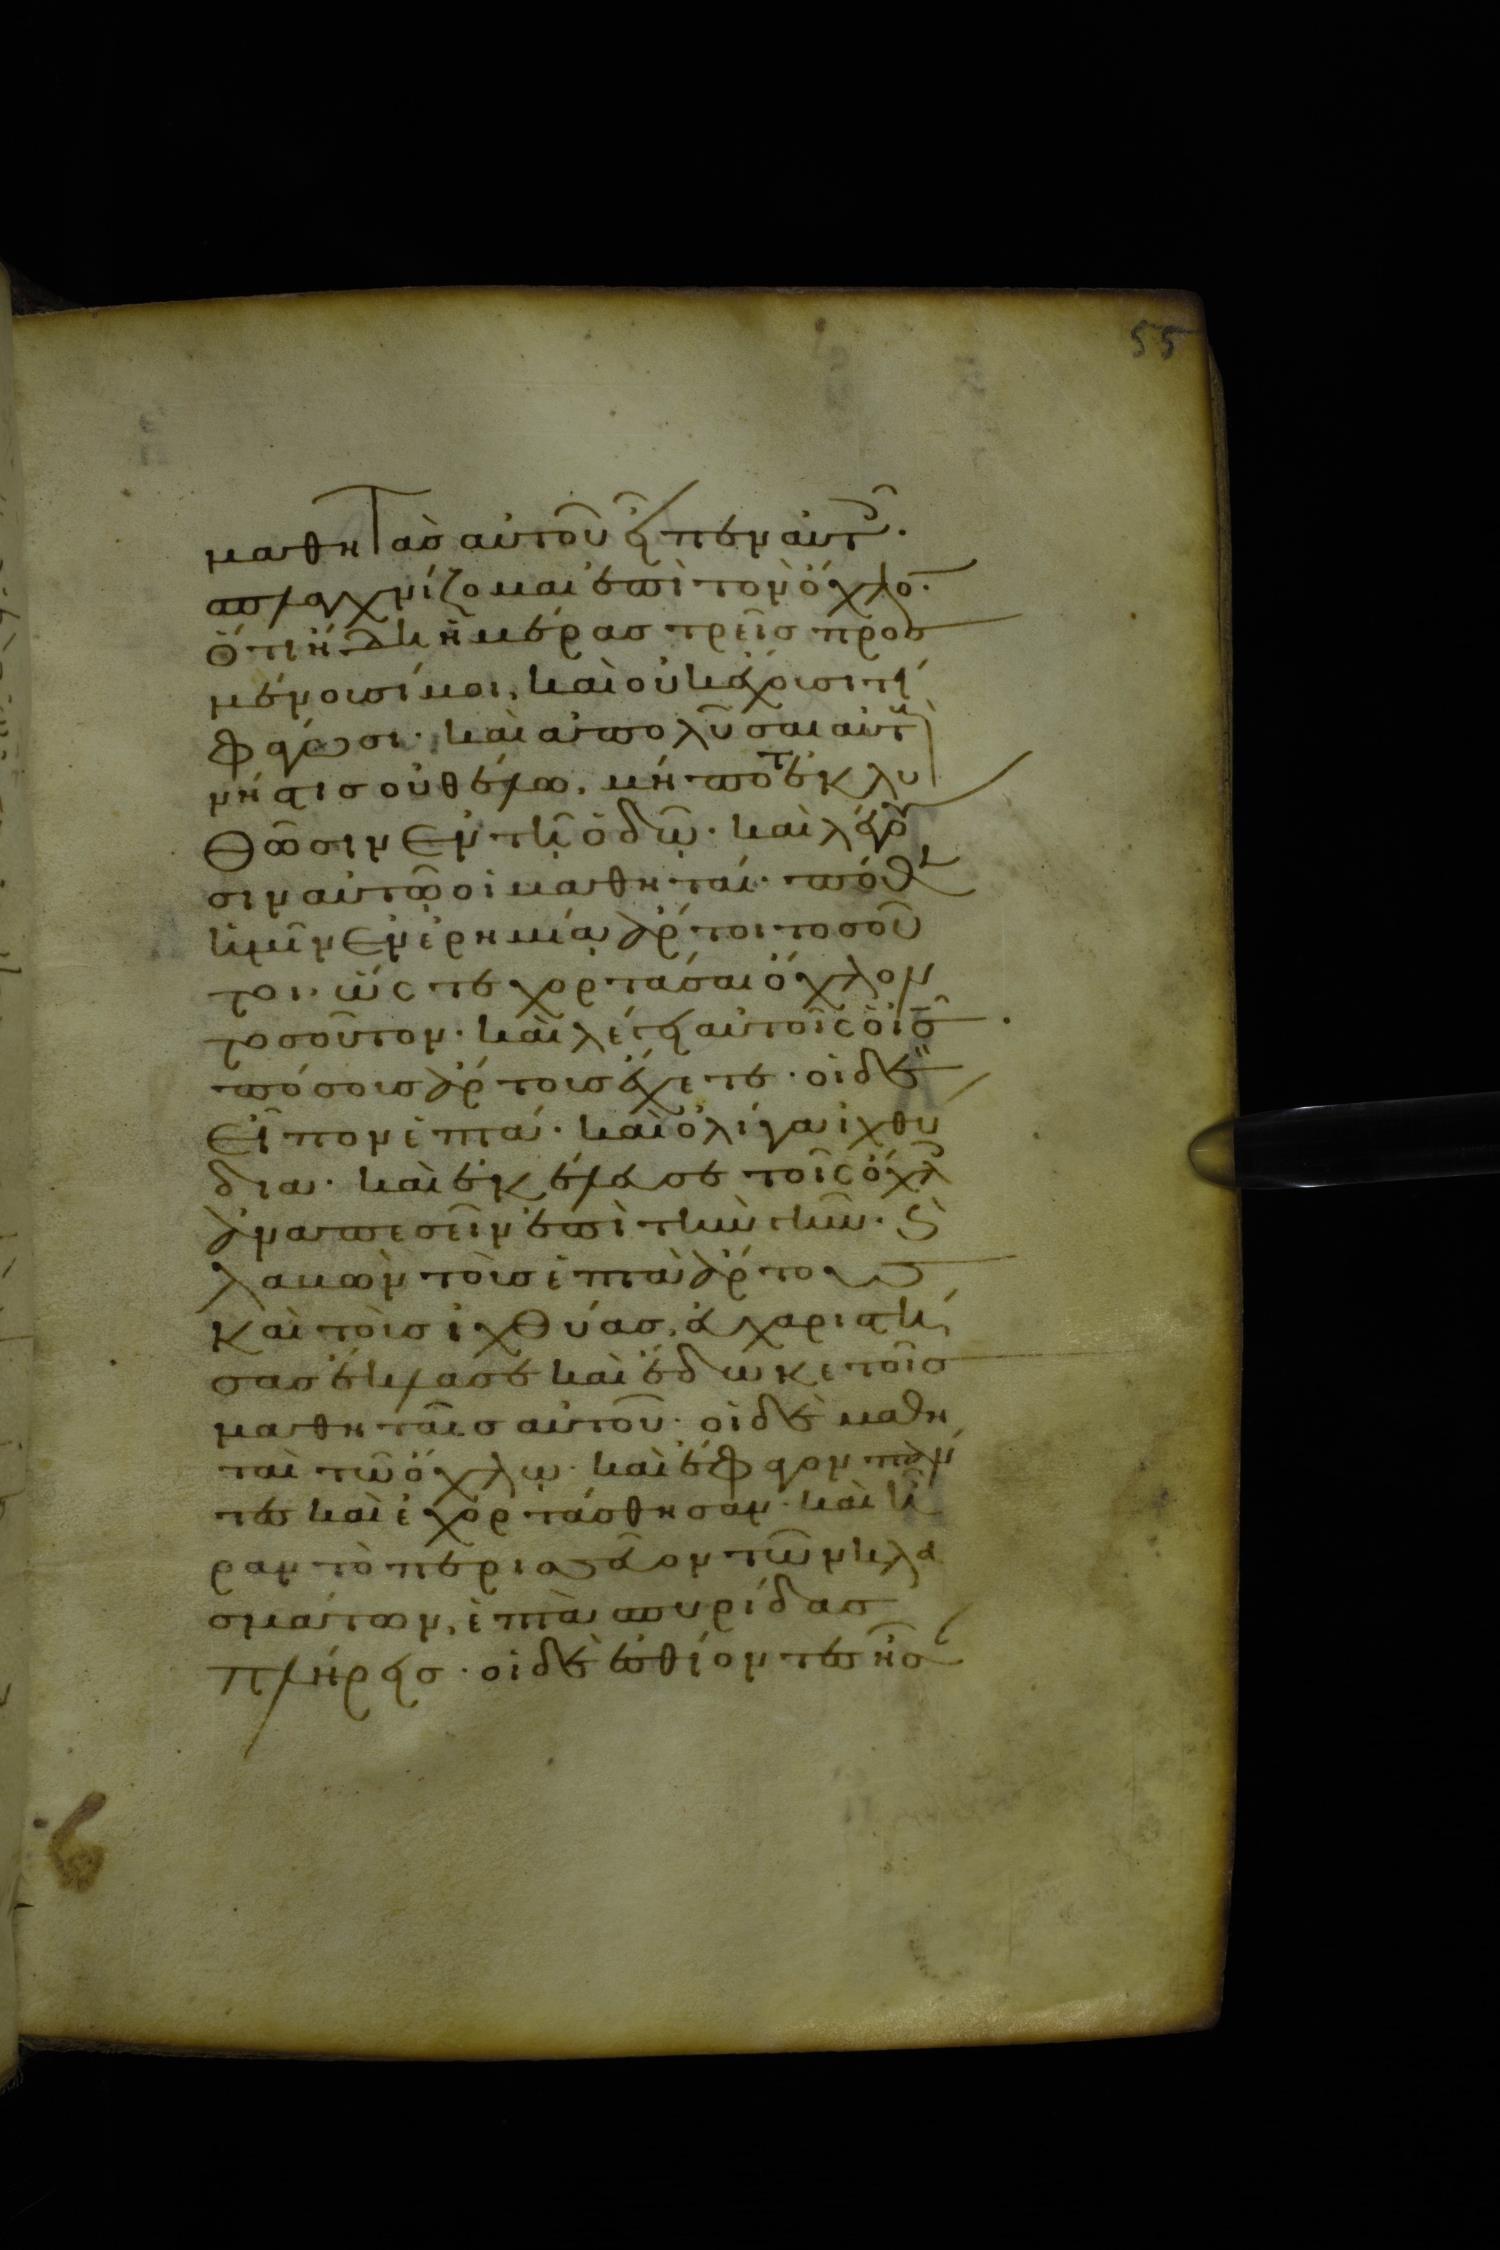 55
μαθητὰσ αὐτοῦ εἶπεν αὐτοῖς.
σπλαγχνίζομαι ἐπὶ τὸν ὄχλον.
ὅτι ἤδη ἡμέρας τρεῖσ προσ
μένουσί μοι, καὶ οὐκ ἔχουσι τί
φάγωσι· καὶ ἀπολῦσαι αὐτοὺς
νήστισ οὐ θέλω, μήποτε ἐκλυ
θῶσιν ἐν τῆ ὁδῷ· καὶ λέγου
σιν αὐτῷ οἱ μαθηταί· πόθεν
ἡμῖν ἐν ἐρημίᾳ ἄρτοι τοσοῦ
τοι· ὥς τε χορτάσαι ὄχλον
τοσοῦτον· καὶ λέγει αὐτοῖς ὁ ις
πόσους ἄρτουσ ἔχετε· οἱ δὲ
εἶπον ἑπτά· καὶ ὀλίγα ἰχθύ
δια· καὶ ἐκέλευσε τοῖς ὄχλοις
ἀναπεσεῖν ἐπὶ τὴν γῆν· καὶ
λαβὼν τοὺσ ἑπτὰ ἄρτουσ
καὶ τοὺσ ἰχθύασ, εὐχαριστή
σασ ἔκλασε καὶ ἔδωκε τοῖσ
μαθηταῖσ αὐτοῦ· οἱ δὲ μαθη
ταὶ τῶ ὄχλῳ· καὶ ἔφαγον πάν
τεσ καὶ ἐχορτάσθησαν· καὶ ἦ
ραν τὸ περισσεῦον τῶν κλα
σμάτων, ἑπτὰ σπυρίδασ
πλήρεισ· οἱ δὲ ἐσθίοντεσ ἦσαν